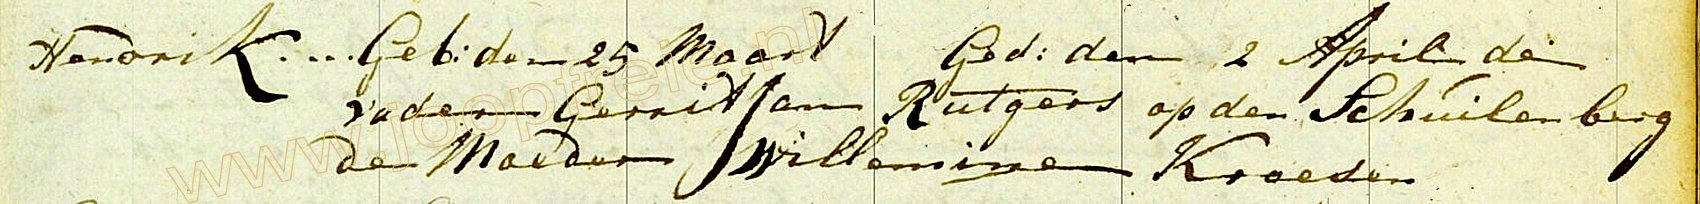 Hendrik.... Geb: den 25 Maart Ged: den 2 April de
vader Gerrit Jan Rutgers op den Schuilenberg
de Moeder Willemine Kroesen
www.jooptrel.nl